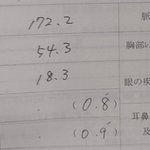 172.2
脈
54.3
胸部
18.3
眼の疾
(0.8)
耳鼻
(0.9)
及